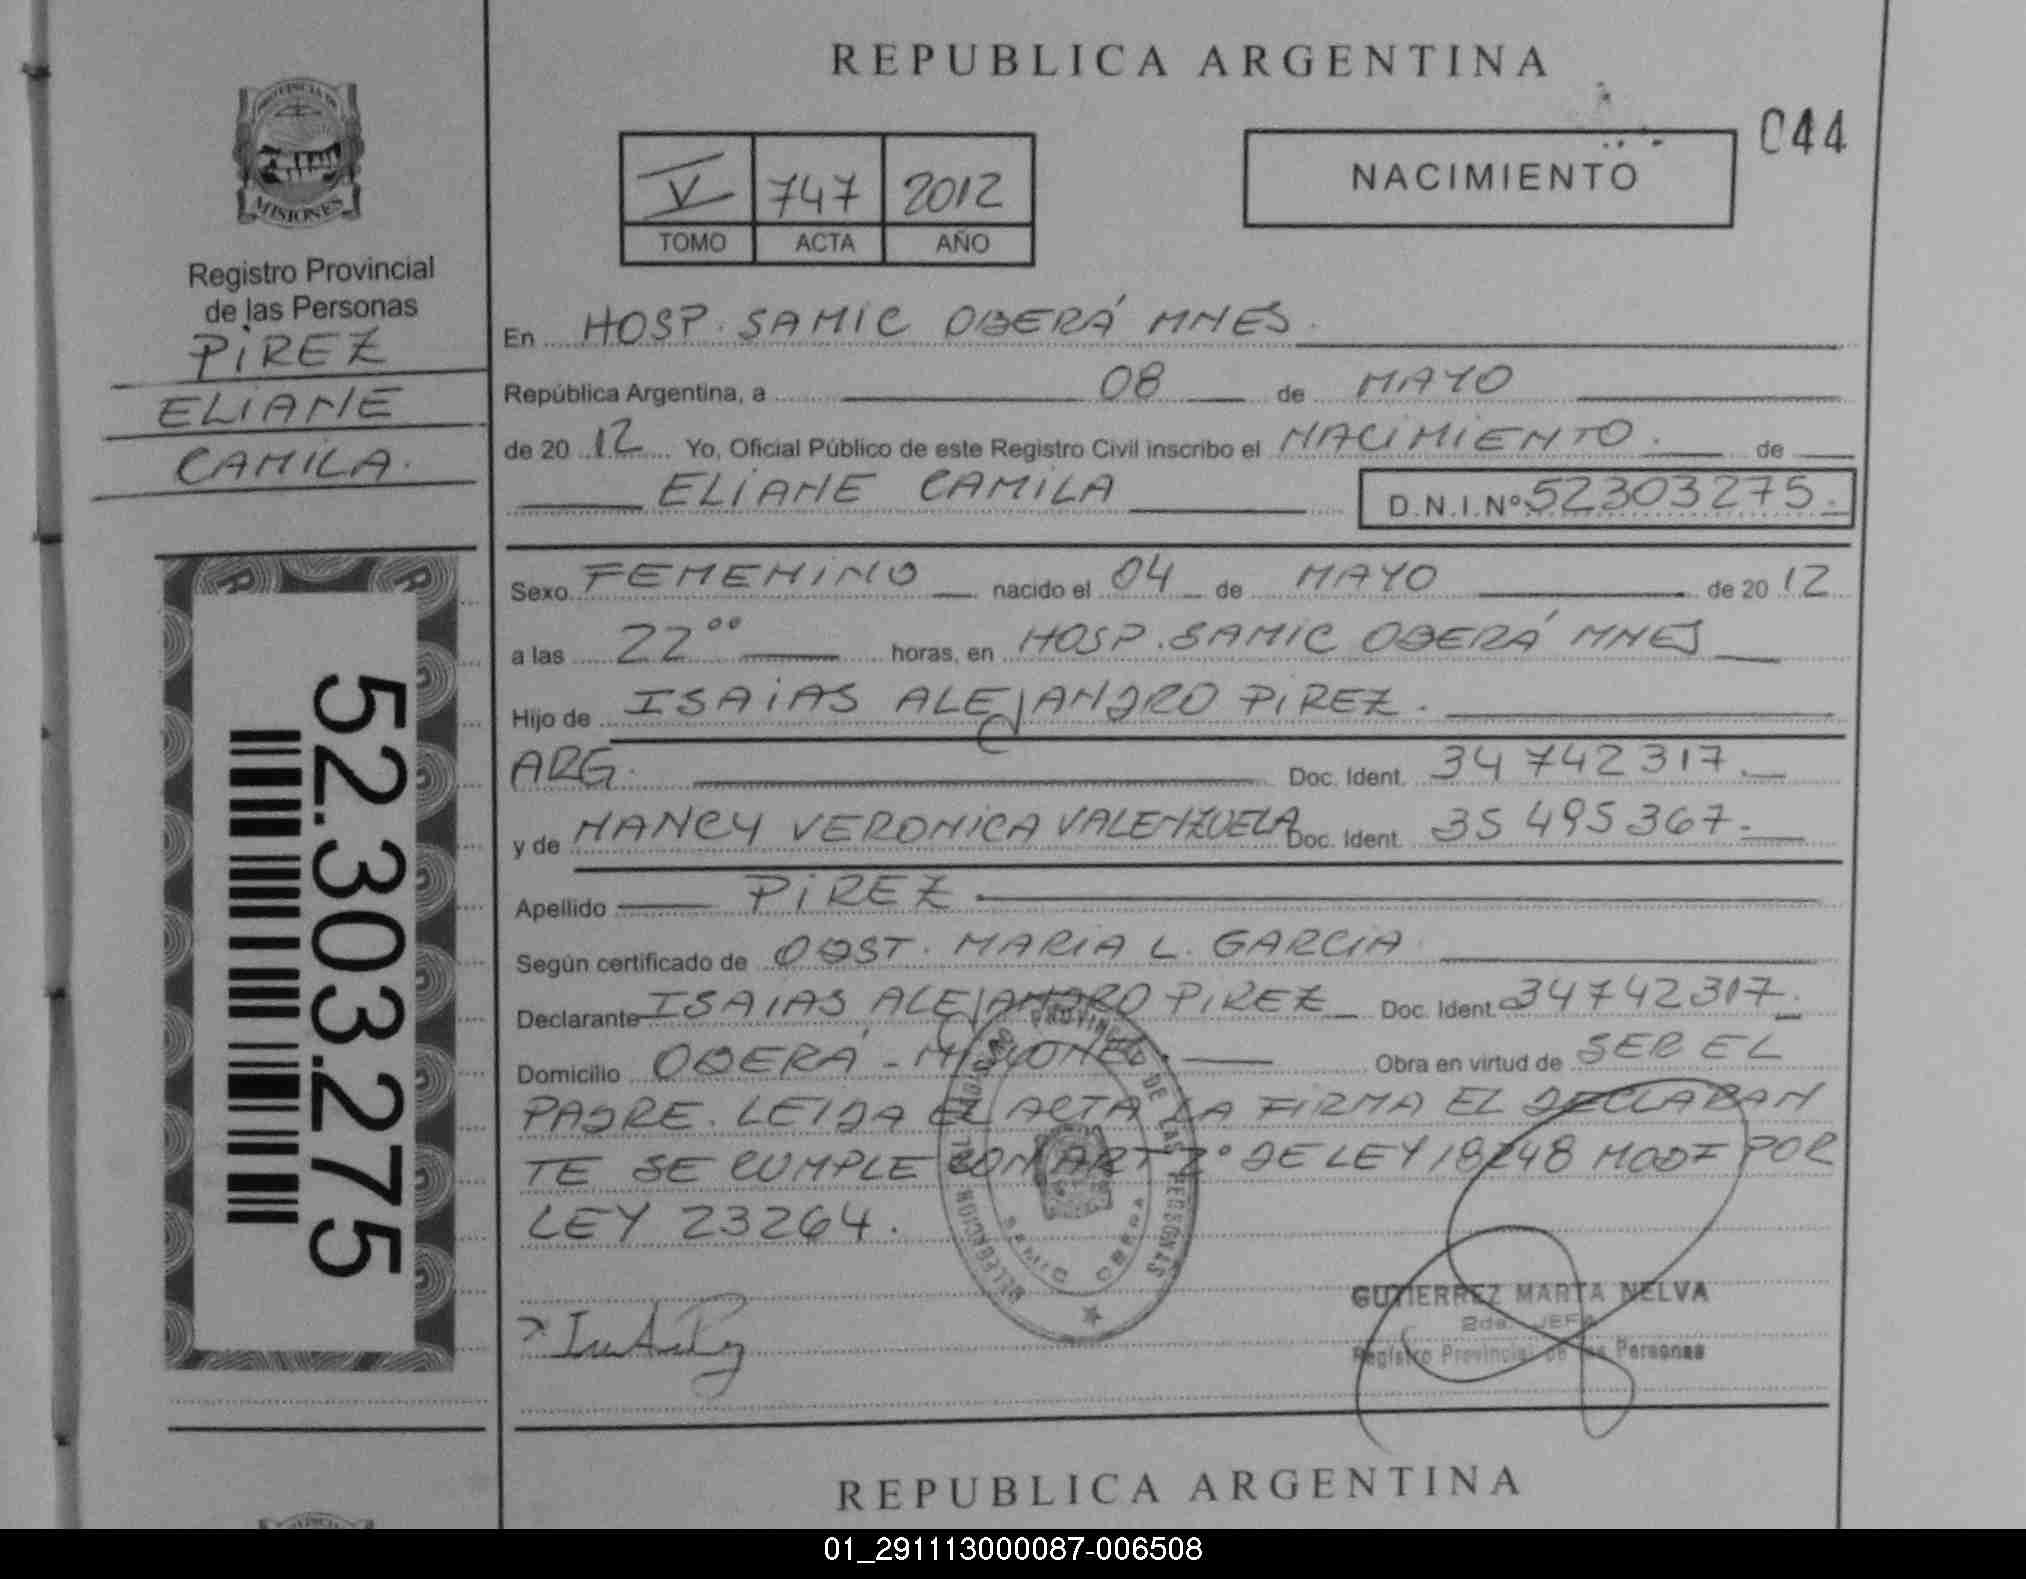 REPUBLICA ARGENTINA
044
NACIMIENTO
V 747 2012
TOMO ACTA AÑO
PROVINCIA DE
MISIONES
Registro Provincial
de las Personas
PIREZ
ELIANE
CAMILA.
52.303.275
En HOSP. SAMIC OBERÁ MNES.
República Argentina, a 08 de MAYO
de 2012 Yo, Oficial Público de este Registro Civil inscribo el NACIMIENTO. de
ELIANE CAMILA D.N.I.Nº 52303275.
Sexo FEMENINO nacido el 04 de MAYO de 2012
a las 22ºº horas, en HOSP. SAMIC OBERÁ MNES
Hijo de ISAIAS ALEJANDRO PIREZ.
ARG. Doc. Ident. 34742317.
y de NANCY VERONICA VALENZUELA Doc. Ident. 35495367.
Apellido PIREZ
Según certificado de OBST. MARIA L. GARCIA
Declarante ISAIAS ALEJANDRO PIREZ Doc. Ident. 34742317.
Domicilio OBERÁ - MISIONES. Obra en virtud de SER EL
PADRE. LEIDA EL ACTA LA FIRMA EL DECLARAN
TE SE CUMPLE CON ART 2º DE LEY 18248 MODF POR
LEY 23264.
DELEGACION
PROVINCIAL DE LAS PERSONAS
SAMIC OBERA
GUTIERREZ MARTA NELVA
2da. JEFA
Registro Provincial de las Personas
REPUBLICA ARGENTINA
01_291113000087-006508